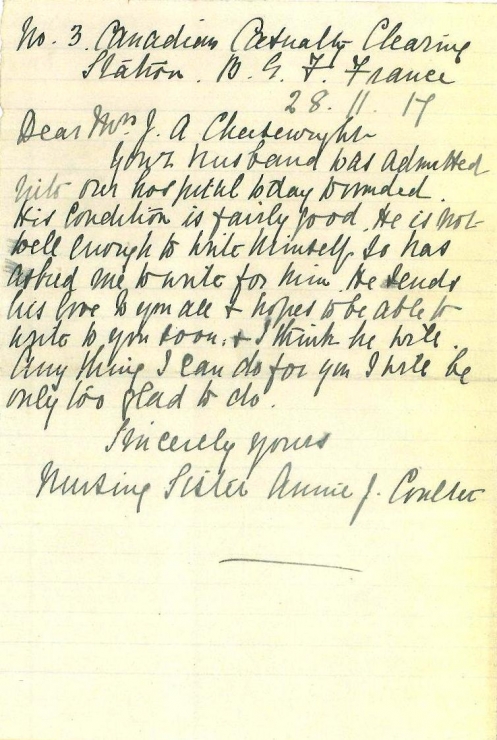 No. 3. Canadian Casualty Clearing
Station. B. E. F. France
28. 11. 17
Dear Mrs J. A Cheesewright
Your husband was admitted
into our hospital today wounded.
His condition is fairly good. He is not
well enough to write himself, so has
asked me to write for him. He sends
his love to you all & hopes to be able to
write to you soon. & I think he will.
Any thing I can do for you I will be
only too glad to do.
Sincerely yours
Nursing Sister Annie J. Coulter